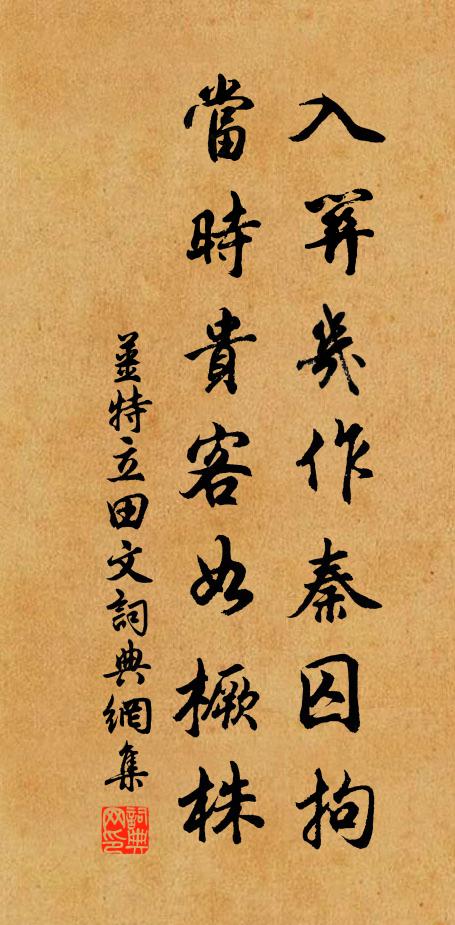 入關幾作秦囚拘
當時貴客如橛株
薑特立田文詞典網集
詞典网印